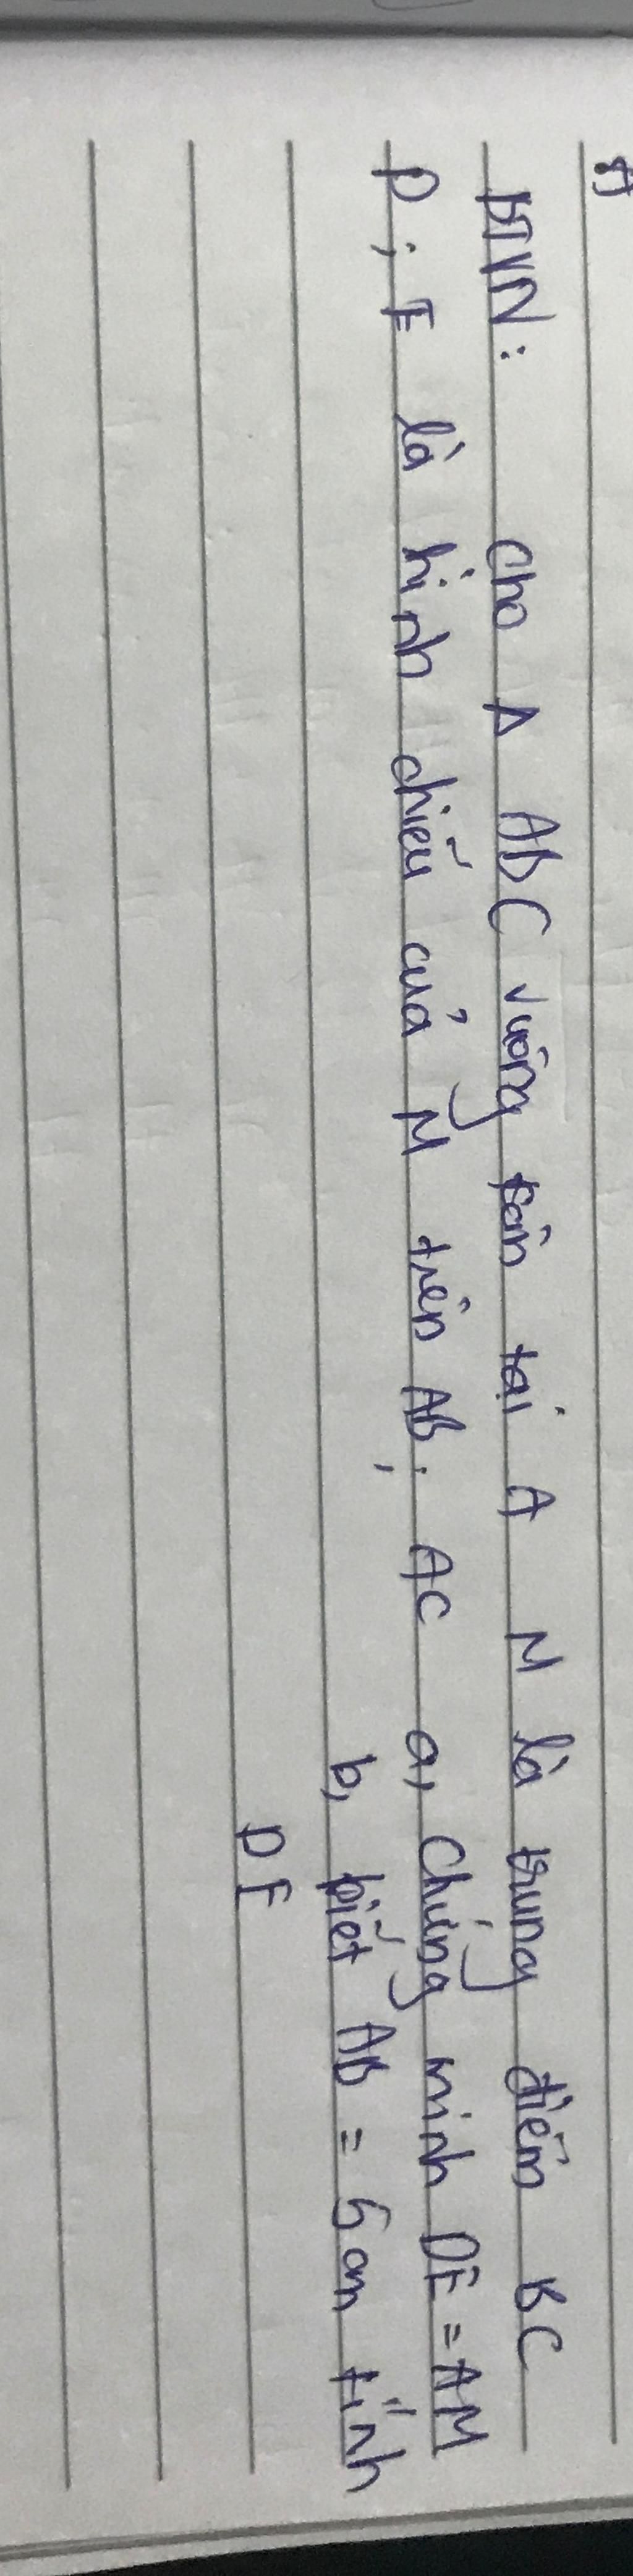 BTVN: Cho Δ ABC vuông cân tại A M là trung điểm BC
D ; E là hình chiếu của M trên AB ; AC a, Chứng minh DE = AM
b, biết AB = 6 cm tính
DE